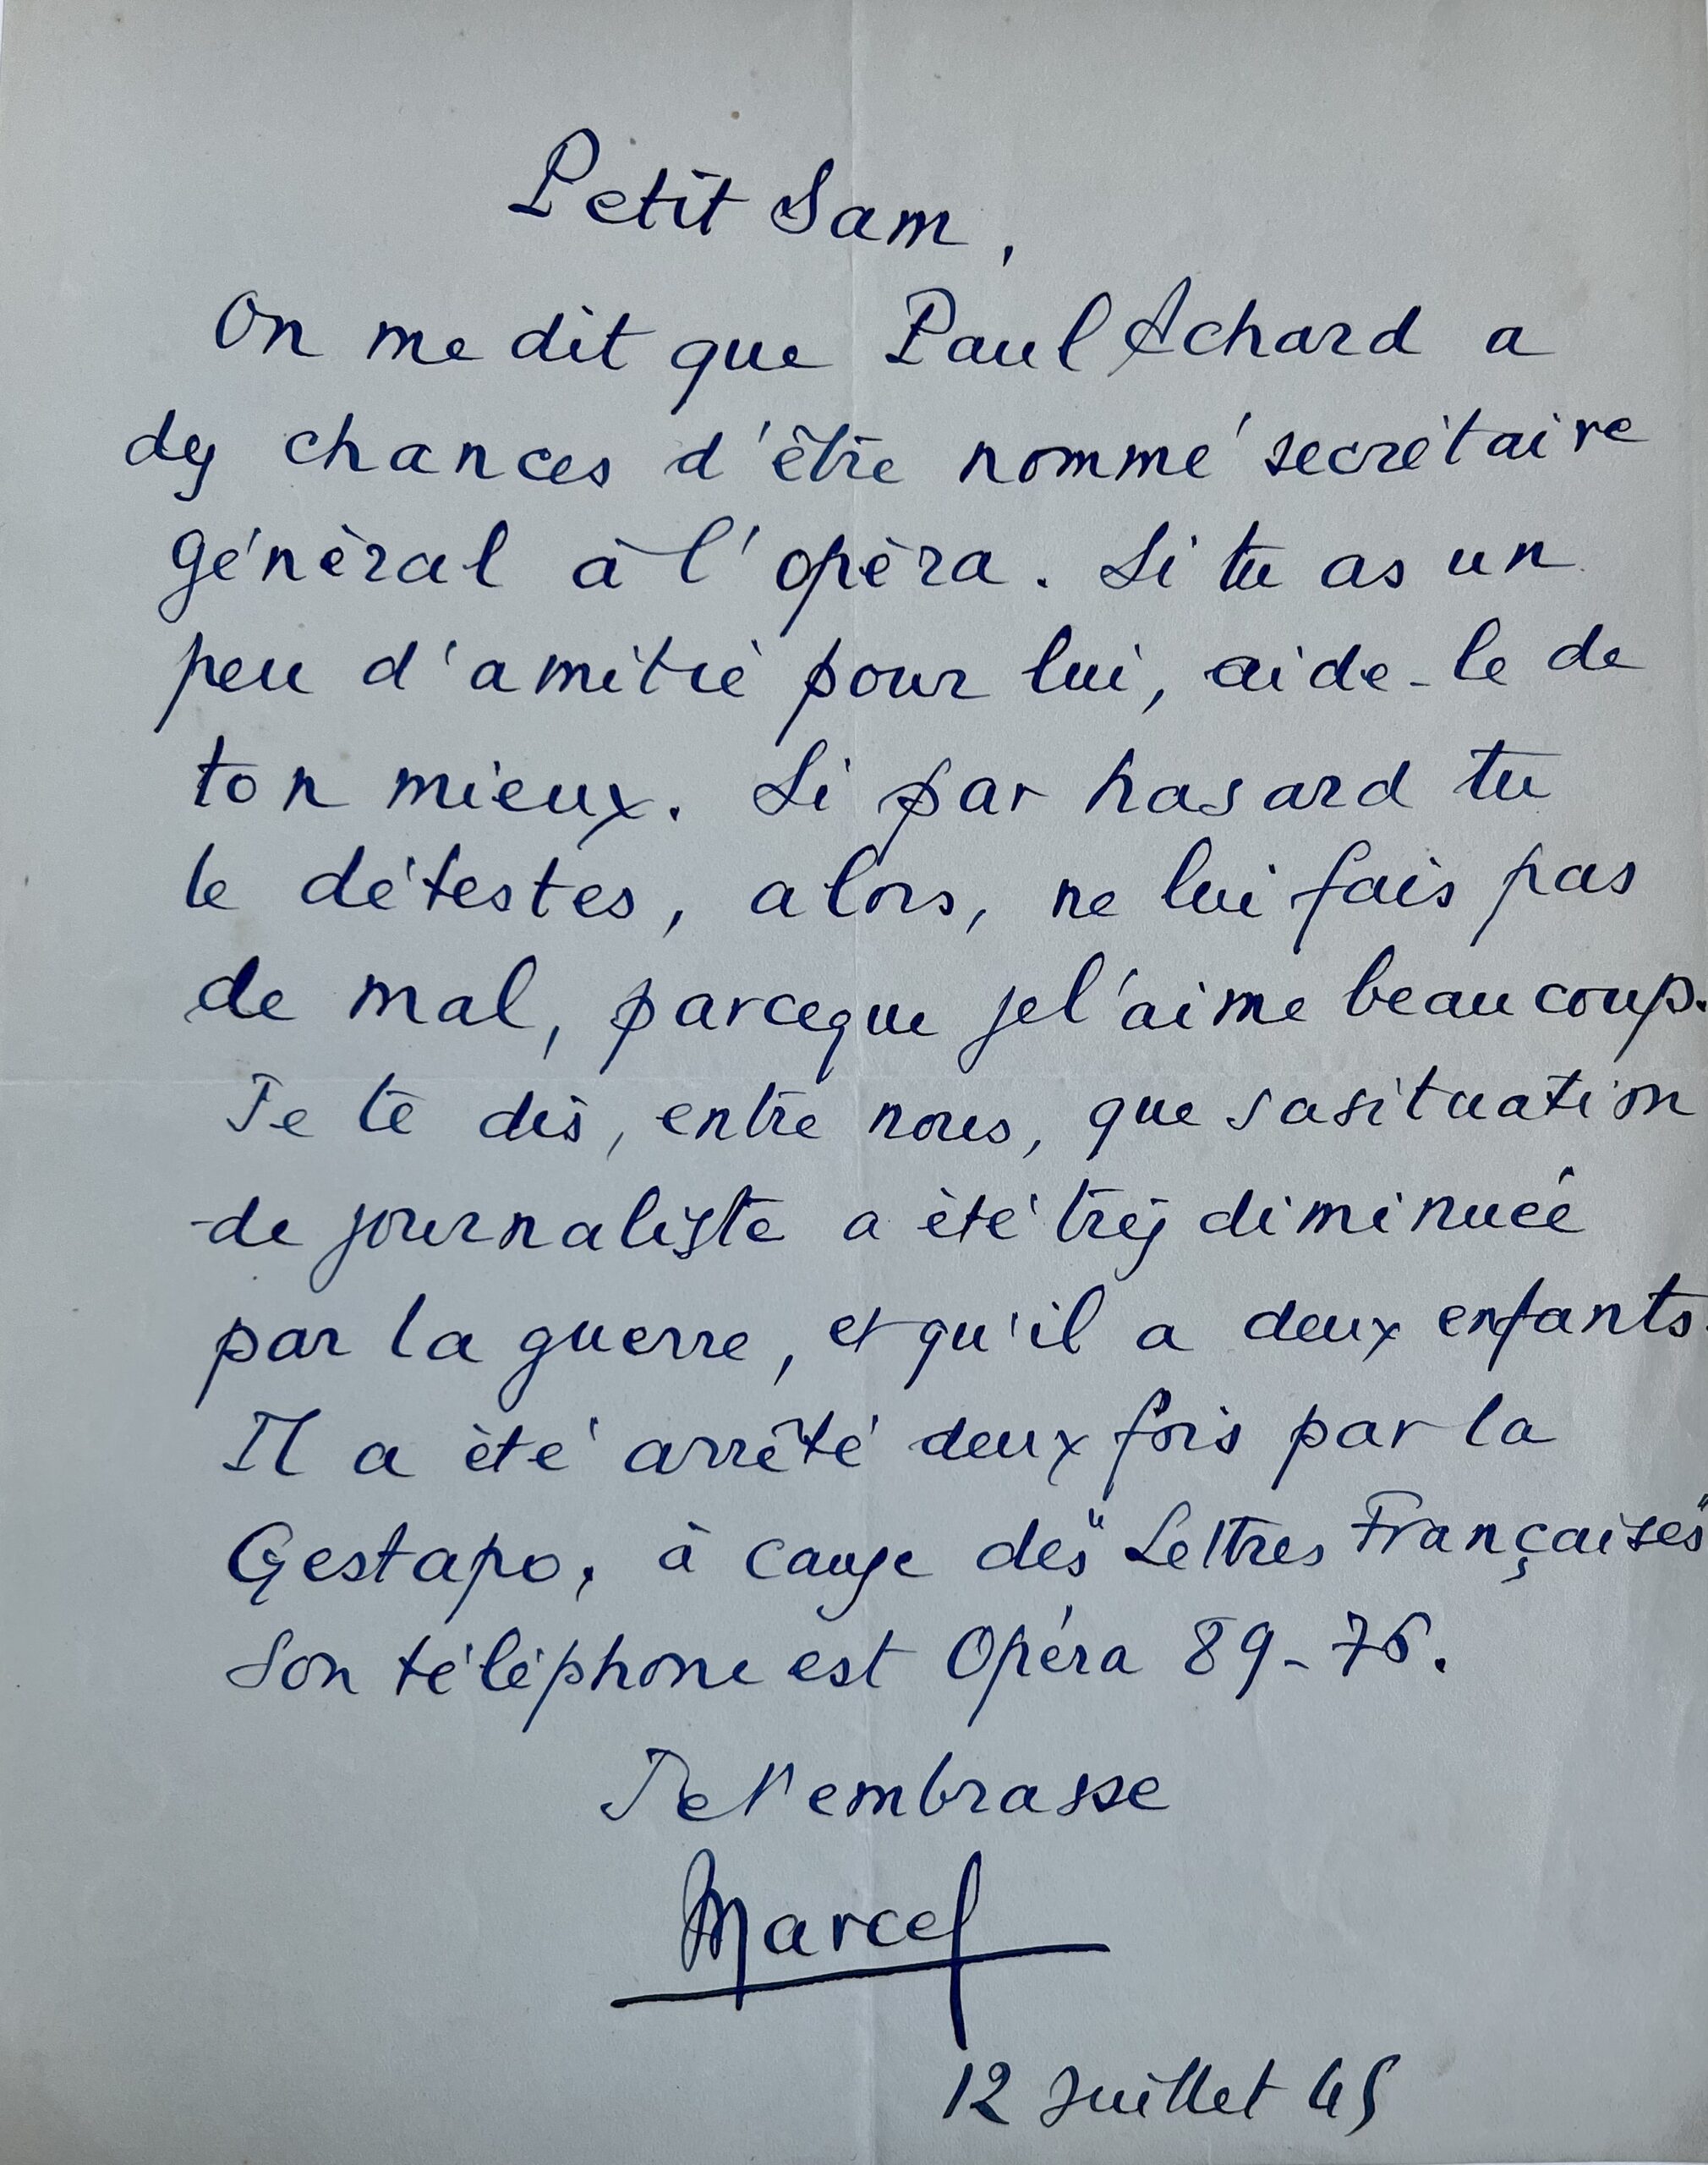 Petit Sam,
On me dit que Paul Achard a
des chances d'être nommé secrétaire
général à l'opéra. Si tu as un
peu d'amitié pour lui, aide-le de
ton mieux. Si par hasard tu
le détestes, alors, ne lui fais pas
de mal, parceque je l'aime beaucoup.
Je te dis, entre nous, que sa situation
de journaliste a été très diminuée
par la guerre, et qu'il a deux enfants.
Il a été arrêté deux fois par la
Gestapo, à cause des "Lettres Françaises"
Son téléphone est Opéra 89-76.
Je t'embrasse
Marcel
12 Juillet 45